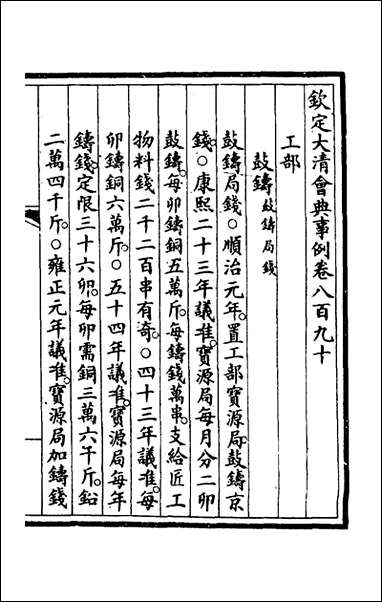 欽定大清會典事例卷八百九十
工部
鼓鑄鼓鑄局錢
鼓鑄局錢○順治元年。置工部寶源局。鼓鑄京
錢。○康熙二十三年議准。寶源局每月分二卯
鼓鑄。每卯鑄銅五萬斤。每鑄錢萬串。支給匠工
物料錢二千二百串有奇。○四十三年議准。每
卯鑄銅六萬斤。○五十四年議准。寶源局每年
鑄錢。定限三十六卯。每卯需銅三萬六千斤。鉛
二萬四千斤。○雍正元年議准。寶源局加鑄錢